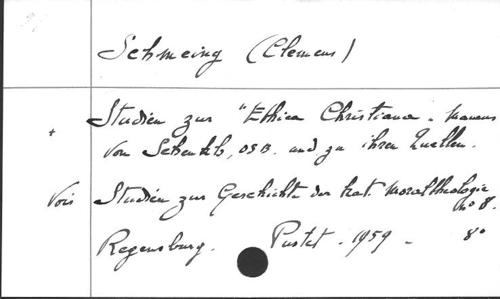 Schmeing (Clemens)
+ Studien zur "Ethica Christiana" Maurus
von Schenkl, OSB. und zu ihren Quellen.
Vois Studien zur Geschichte der kat. Moraltheologie
n° 8.
Regensburg. Pustet. 1959. 8°